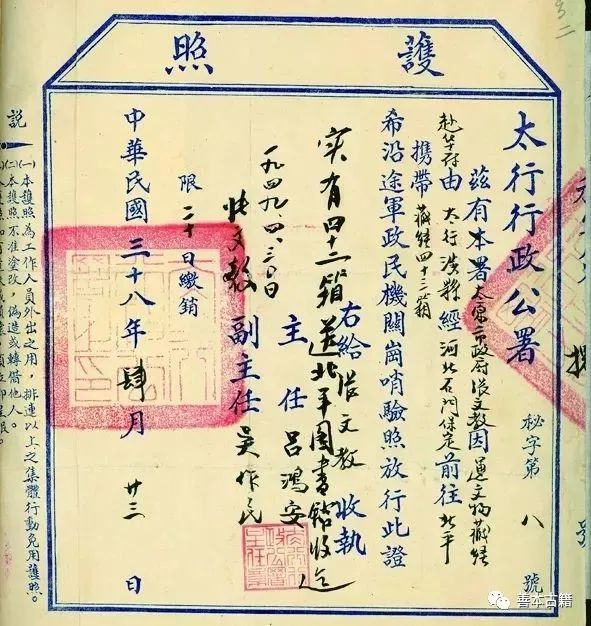 護照
太行行政公署
秘字第八號
茲有本署太原市政府張文教因運文物藏經
赴華存由太行涉縣經河北石門保定前往北平
攜帶藏經四十三箱
希沿途軍政民機關崗哨驗照放行此證
右給張文教收執
实有四十二箱送北平图書館收訖
一九四九、四、三〇日
张文教
主任呂鴻安
副主任吴作民
限二十日繳銷
中華民國三十八年肆月廿三日
説
(一)本護照為工作人員外出之用,排連以上之集體行動免用護照。
(二)本護照不准塗改,偽造或轉借他人。
善本古籍